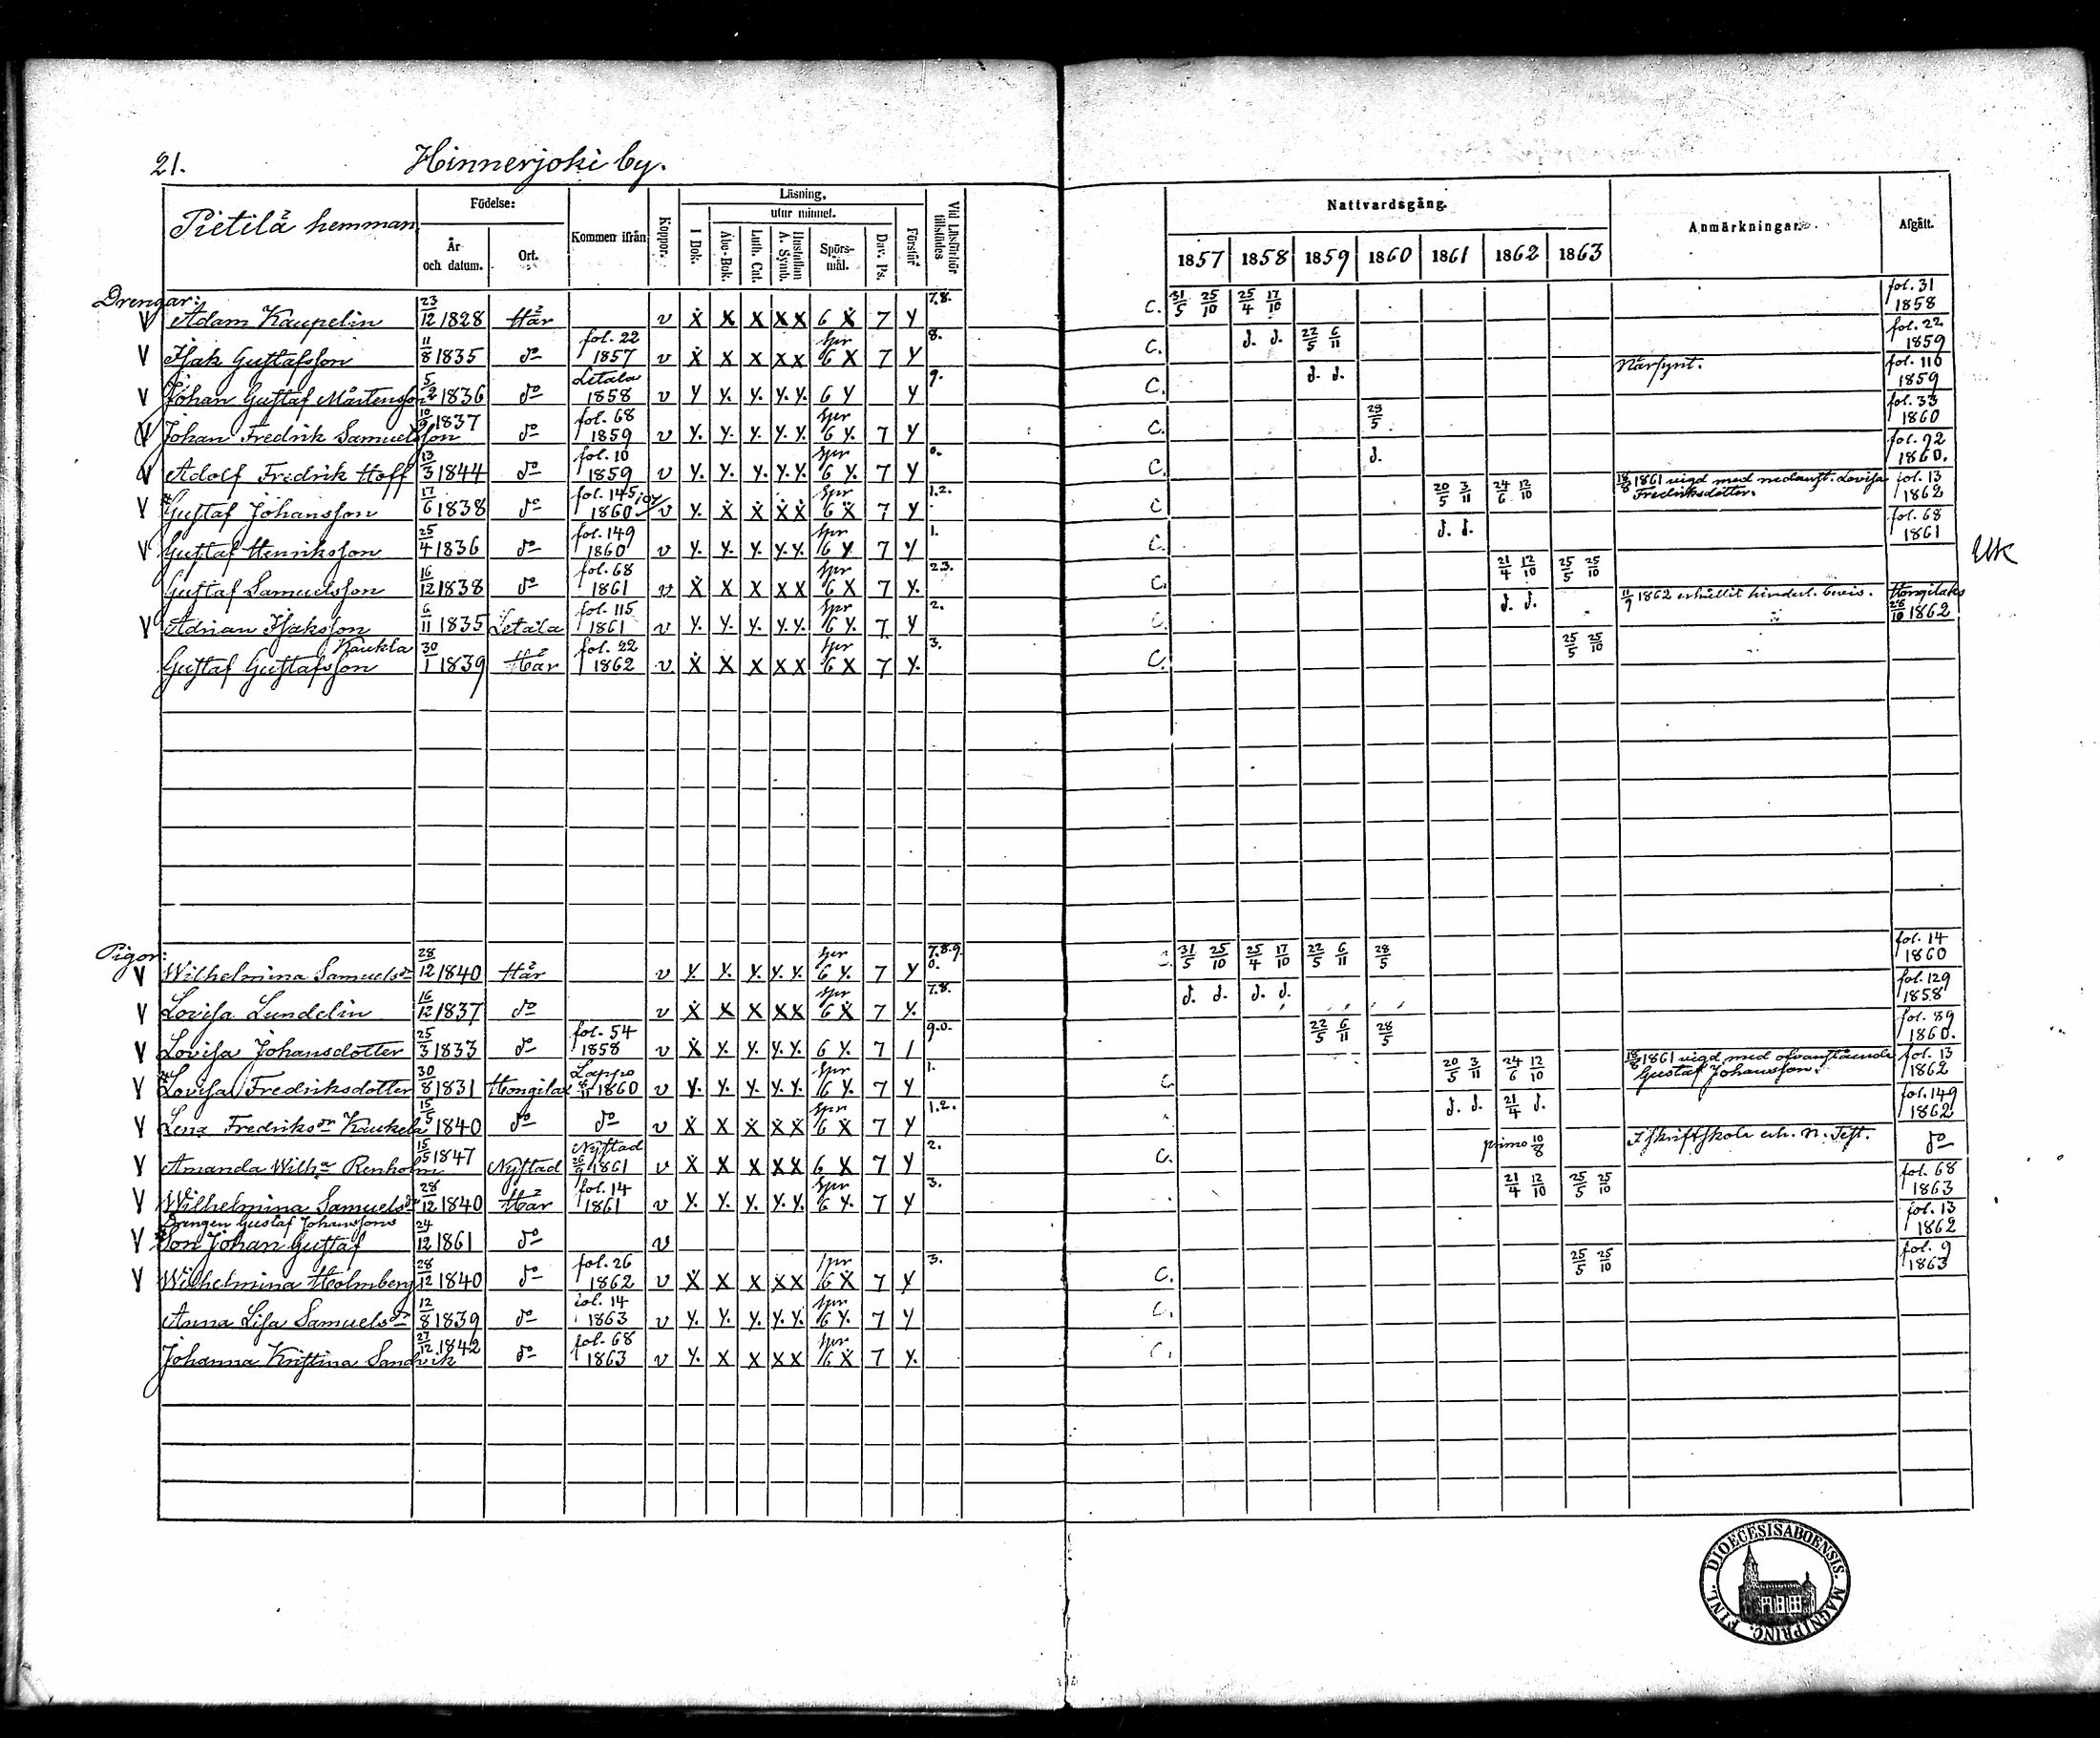 21. Hinnerjoki by.
Pietilä hemman
Födelse: År och datum. Ort. Kommen ifrån Koppor. Läsning. I Bok. utur minnet. Åbo-Bok. Luth. Cat. Hustaflan A. Symb. Spörs-mål. Dav. Ps. Förstår Vid Läsförhör tillstädes
Nattvardsgång. 1857 1858 1859 1860 1861 1862 1863 Anmärkningar. Afgått.
Drengar:
V Adam Kaupelin 23/12 1828 Här v X X X X X 6 X 7 Y 7.8. C. 31/5 25/10 25/4 17/10 fol. 31 1858
V Isak Gustafsson 11/8 1835 do fol. 22 1857 v X X X X X Spr 6 X 7 Y 8. C. d. d. 22/5 6/11 fol. 22 1859
V Johan Gustaf Mårtensson 5/2 1836 do Letala 1858 v Y Y. Y. Y. Y. 6 Y Y 9. C. d. d. Närsynt. fol. 110 1859
V Johan Fredrik Samuelsson 10/9 1837 do fol. 68 1859 v Y. Y. Y. Y. Y. Spr 6 Y. 7 Y C. 28/5 fol. 33 1860
V Adolf Fredrik Hoff 13/3 1844 do fol. 10 1859 v Y. Y. Y. Y. Y. Spr 6 Y. 7 Y 0. C. d. fol. 92 1860.
V Gustaf Johansson 17/6 1838 do fol. 145 1860 v Y. X X X X Spr 6 X 7 Y 1.2. C 20/5 3/11 24/6 12/10 18/8 1861 vigd med nedanst. Lovisa Fredriksdotter. fol. 13 1862
V Gustaf Henriksson 25/4 1836 do fol. 149 1860 v Y. Y. Y. Y. Y. Spr 6 Y 7 Y 1. C. d. d. fol. 68 1861
Gustaf Samuelsson 16/12 1838 do fol. 68 1861 v X X X X X Spr 6 X 7 Y. 2.3. C. 21/4 12/10 25/5 25/10 Uk
V Adrian Isaksson 6/11 1835 Letala fol. 115 1861 v Y. Y. Y. Y. Y. Spr 6 Y. 7 Y 2. C. d. d. 11/9 1862 erhållit hinderl. bevis. Hongilaks 26/10 1862
Kaukla
Gustaf Gustafsson 30/1 1839 Här fol. 22 1862 v X X X X X Spr 6 X 7 Y. 3. C. 25/5 25/10
Pigor:
V Wilhelmina Samuelsdr 28/12 1840 Här v Y. Y. Y. Y. Y. Spr 6 Y. 7 Y 7.8.9. 0. C. 31/5 25/10 25/4 17/10 22/5 6/11 28/5 fol. 14 1860
V Lovisa Lundelin 16/12 1837 do v X X X X X Spr 6 X 7 Y. 7.8. d. d. d. d. fol. 129 1858
V Lovisa Johansdotter 25/3 1833 do fol. 54 1858 v X Y. Y. Y. Y. 6 Y. 7 / 9.0. 22/5 6/11 28/5 fol. 89 1860.
V Lovisa Fredriksdotter 30/8 1831 Hongilax Lappo 1860 v Y. Y. Y. Y. Y. Spr 6 Y. 7 Y 1. C. 20/5 3/11 24/6 12/10 18/8 1861 vigd med ofvanstående Gustaf Johansson. fol. 13 1862
V Lena Fredriksdr Kaukela 15/5 1840 do do v X X X X X Spr 6 X 7 Y 1.2. d. d. 21/4 d. fol. 149 1862
V Amanda Wilha Renholm 15/5 1847 Nystad Nystad 26/9 1861 v X X X X X 6 X 7 Y 2. C. primo 10/8 I skriftskola erh. N. Test. do
V Wilhelmina Samuelsdr 28/12 1840 Här fol. 14 1861 v Y. Y. Y. Y. Y. Spr 6 Y. 7 Y 3. 21/4 12/10 25/5 25/10 fol. 68 1863
Drengen Gustaf Johanssons
V Son Johan Gustaf 24/12 1861 do v fol. 13 1862
V Wilhelmina Holmberg 28/12 1840 do fol. 26 1862 v X X X X X Spr 6 X 7 Y 3. C. 25/5 25/10 fol. 9 1863
Anna Lisa Samuelsdr 12/8 1839 do fol. 14 1863 v Y. Y. Y. Y. Y. Spr 6 Y. 7 Y C.
Johanna Kristina Sandvik 27/12 1842 do fol. 68 1863 v Y. X X X X Spr 6 X 7 Y. C.
FINL. DIOECESIS ABOENSIS. MAGNI PRINC.